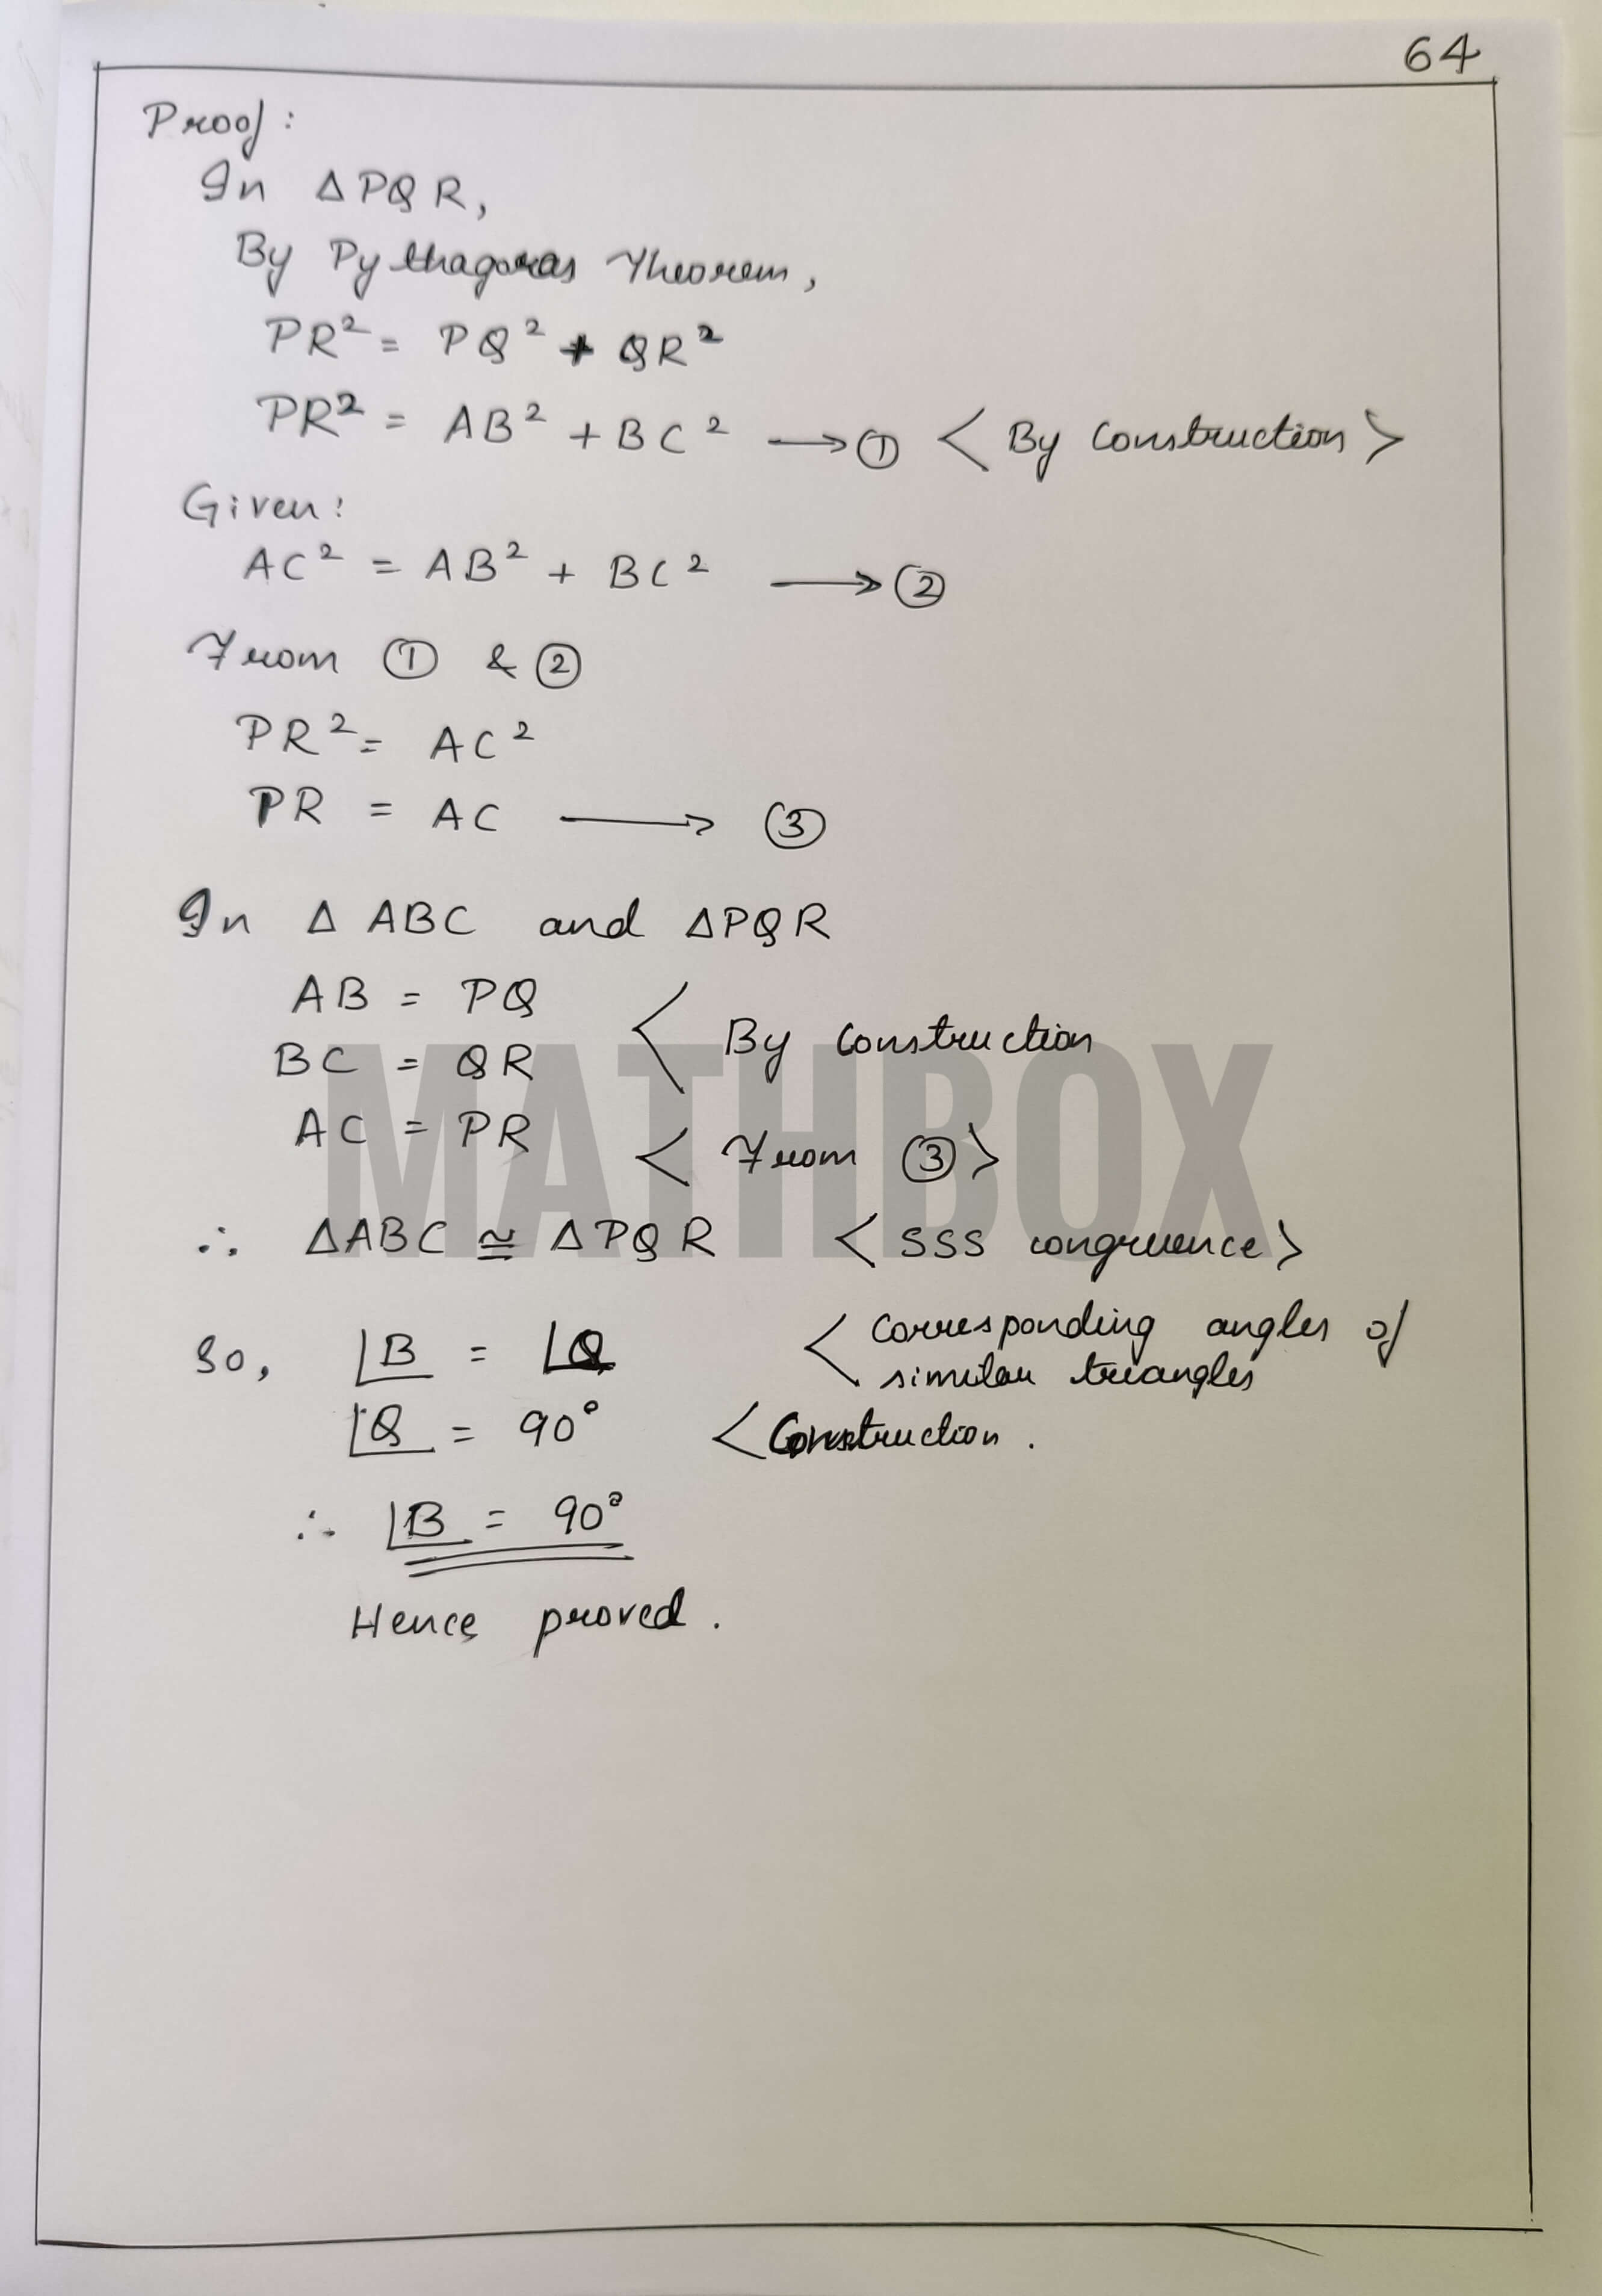 64
Proof:
In Δ PQR,
By Pythagoras Theorem,
PR² = PQ² + QR²
PR² = AB² + BC² → ① < By Construction >
Given:
AC² = AB² + BC² → ②
From ① & ②
PR² = AC²
PR = AC → ③
In Δ ABC and ΔPQR
AB = PQ
< By Construction
BC = QR
AC = PR < From ③ >
MATHBOX
∴ ΔABC ≅ ΔPQR < SSS congruence >
So, ∠B = ∠Q < Corresponding angles of
similar triangles
∠Q = 90° < Construction.
∴ ∠B = 90°
Hence proved.